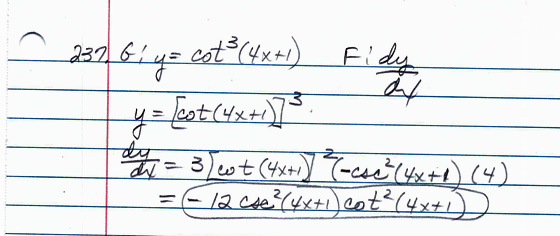 237. G: y = cot³(4x+1) F: dy/dx
y = [cot(4x+1)]³.
dy/dx = 3[cot(4x+1)]²(-csc²(4x+1)(4)
= -12 csc²(4x+1) cot²(4x+1)